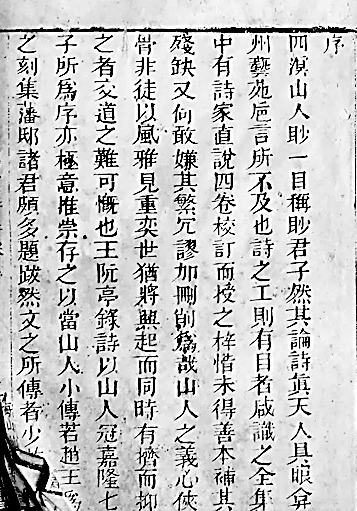 序
四溟山人眇一目稱眇君子然其論詩真天人具眼弇
州藝苑卮言所不及也詩之工則有目者咸識之全集
中有詩家直說四卷校訂而授之梓惜未得善本補其
殘缺又何敢嫌其繁冗謬加刪削爲哉山人之義心俠
骨非徒以風雅見重奕世猶將興起而同時有擠而抑
之者交道之難可慨也王阮亭錄詩以山人冠嘉隆七
子所爲序亦極意推崇存之以當山人小傳若趙王
之刻集藩邸諸君頗多題跋然文之所傳者少